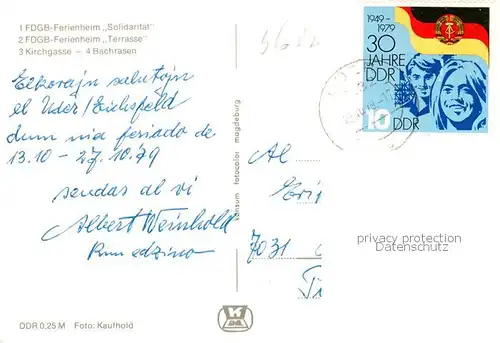 1 FDGB-Ferienheim „Solidarität"
2 FDGB-Ferienheim „Terrasse"
3 Kirchgasse – 4 Bachrasen
1949-
1979
30
JAHRE
DDR
10 DDR
Elkorajn salutojn
el Uder/Eichsfeld
dum nia feriado de
13.10 - 27.10.79
sendas al vi
Albert Weinhold
kun edzino
fotocolor magdeburg
Al
7031
privacy protection
Datenschutz
DDR 0,25 M Foto: Kaufhold